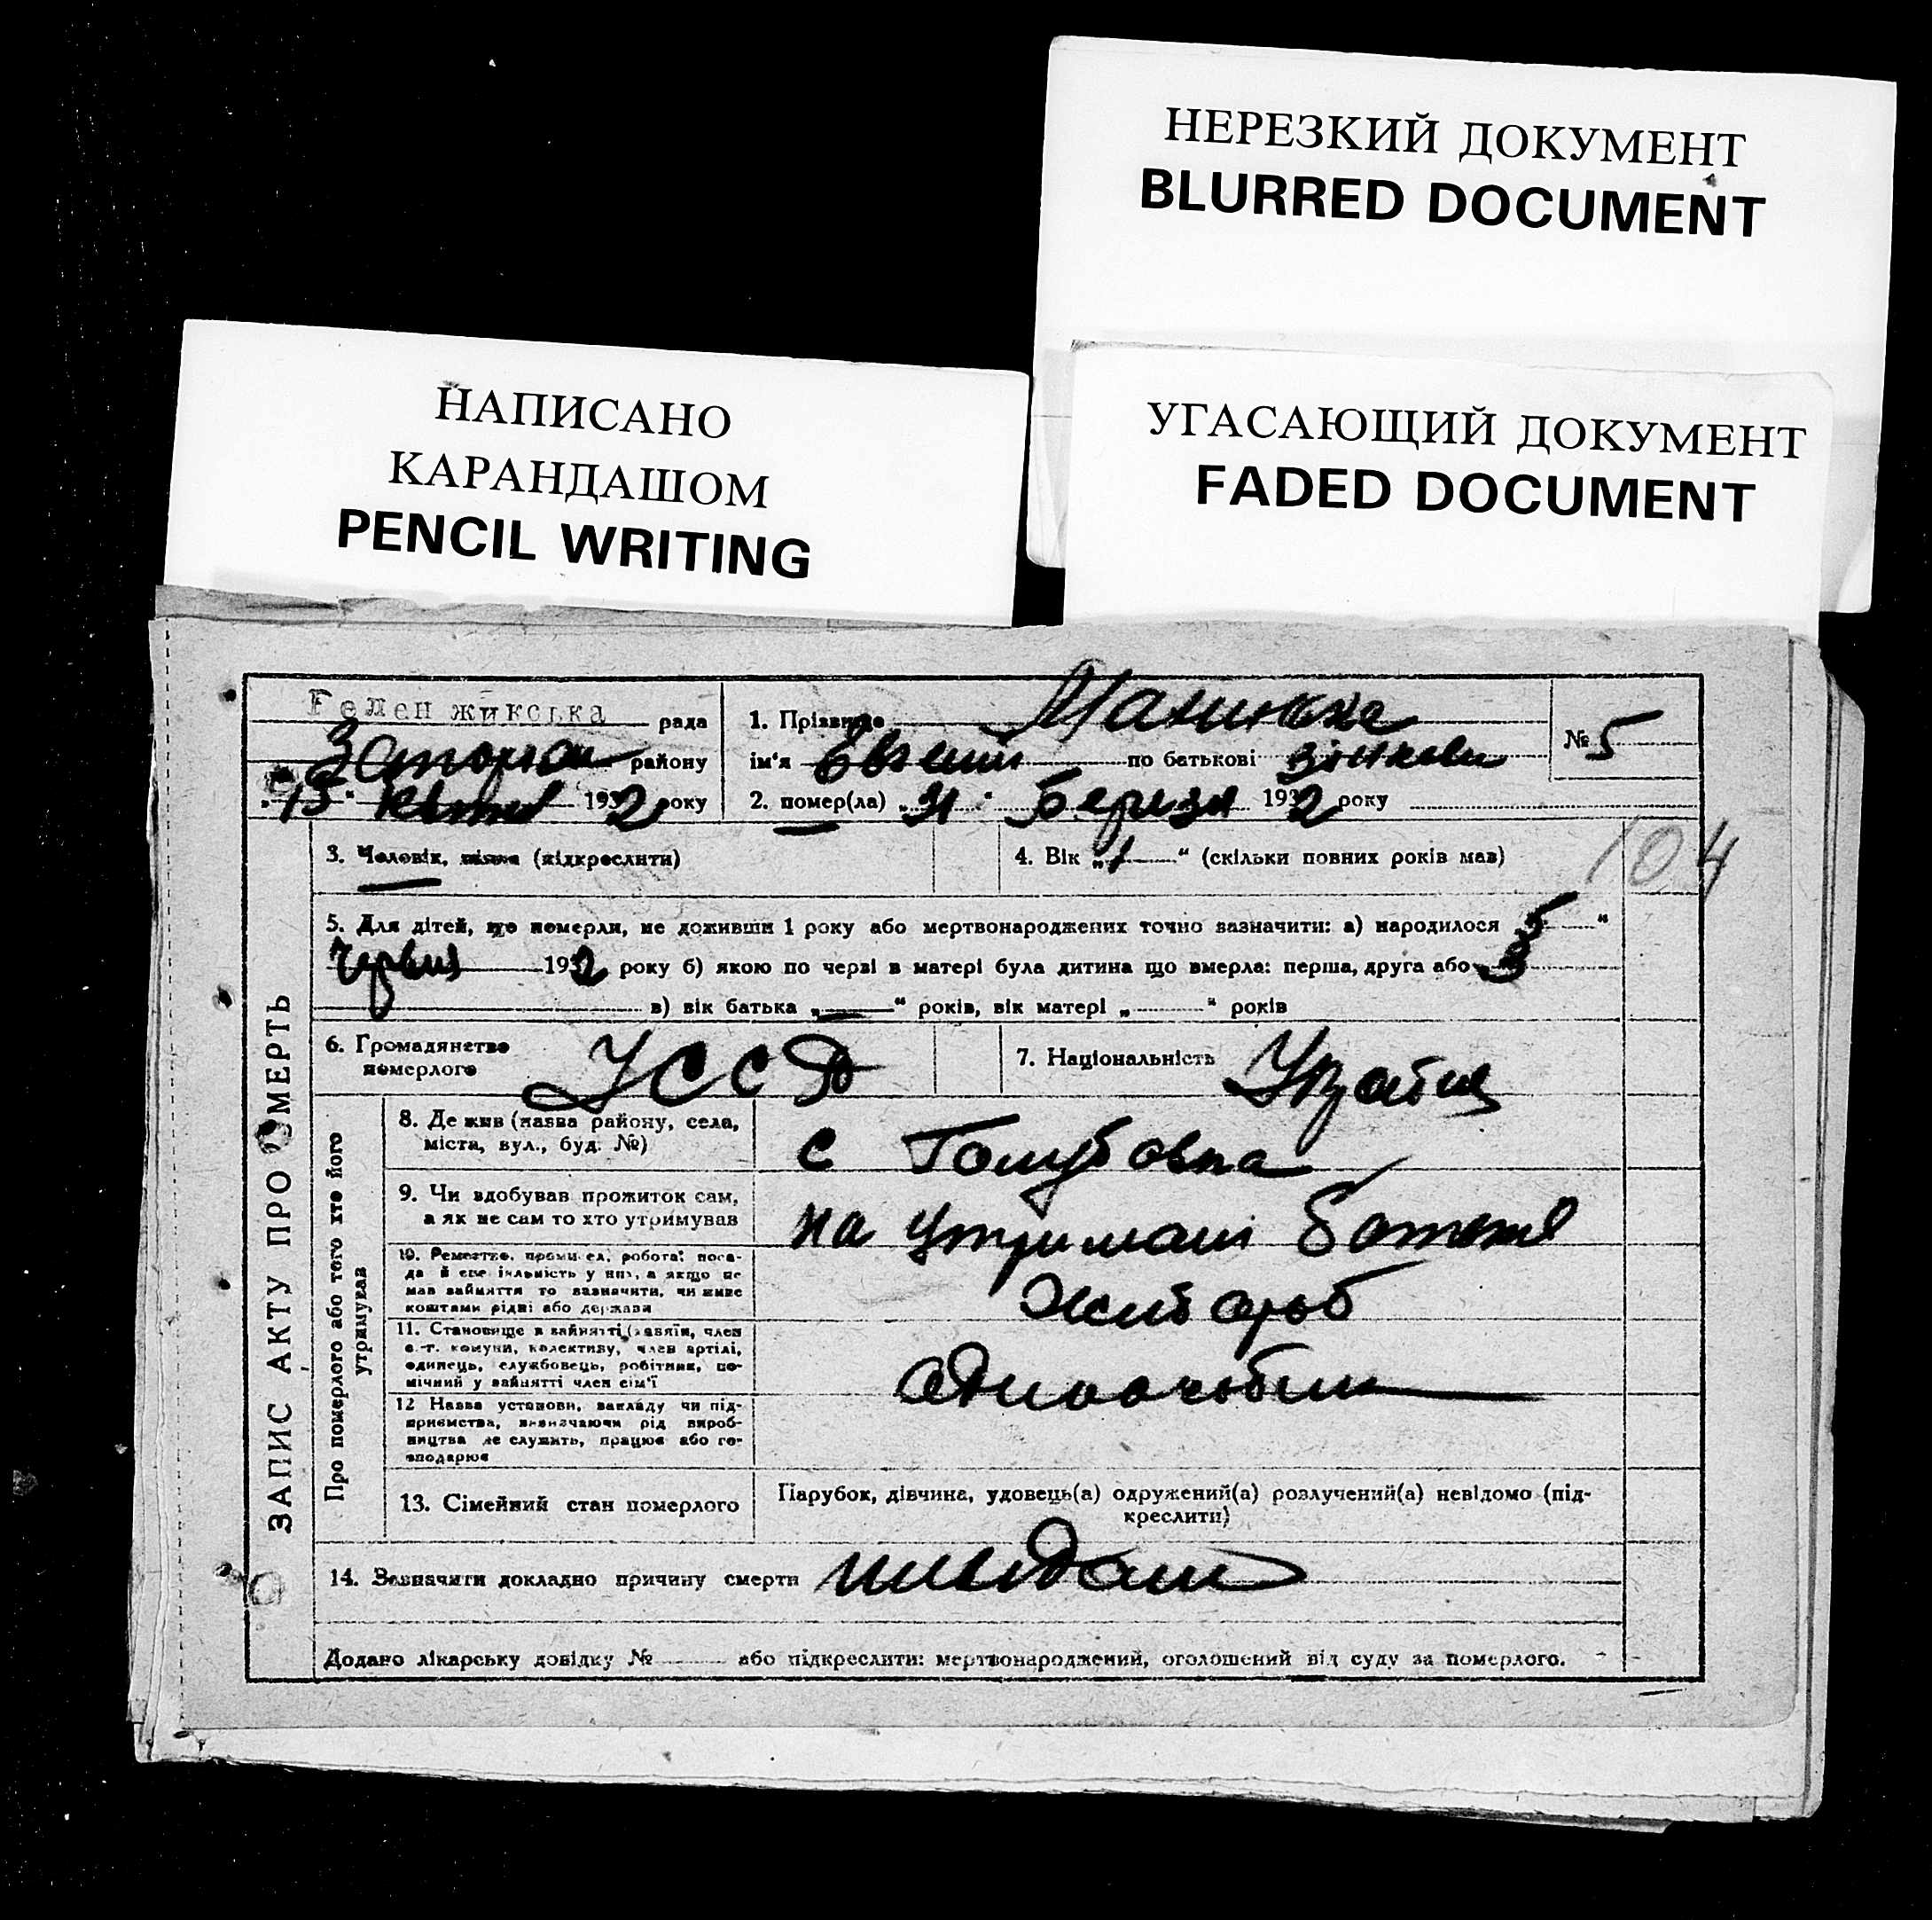 НЕРЕЗКИЙ ДОКУМЕНТ
BLURRED DOCUMENT
УГАСАЮЩИЙ ДОКУМЕНТ
FADED DOCUMENT
НАПИСАНО
КАРАНДАШОМ
PENCIL WRITING
ЗАПИС АКТУ ПРО СМЕРТЬ
рада
району
15 1932 року
1. Прізвище
ім'я Євгеній по батькові
2. помер(ла) „31“ Березня 1932 року
№ 5
3. Чоловік, жінка (підкреслити)
4. Вік „1“ (скільки повних років мав)
104
5. Для дітей, що померли, не доживши 1 року або мертвонароджених точно зазначити: а) народилося 5 “
Червня 1932 року б) якою по черзі в матері була дитина що вмерла: перша, друга або 3
в) вік батька „ — “ років, вік матері „ “ років
6. Громадянство
померлого
УССР
7. Національність
Про померлого або того хто його
утримував
8. Де жив (назва району, села,
міста, вул., буд. №)
с Голубовка
9. Чи здобував прожиток сам,
а як не сам то хто утримував
на утримані
10. Ремество, промисел, робота; поса-
да й спеціяльність у них, а якщо не
мав зайняття то зазначити, чи живе
коштами рідні або держави
Хлібороб
11. Становище в зайнятті (хазяїн, член
с.-г. комуни, колективу, член артілі,
одинець, службовець, робітник, по-
мічний у зайнятті член сім'ї
12 Назва установи, закладу чи під-
приємства, визначаючи рід вироб-
ництва де служить, працює або го-
сподарює
13. Сімейний стан померлого
Парубок, дівчина, удовець(а) одружений(а) розлучений(а) невідомо (під-
креслити)
14. Зазначити докладно причину смерти
Додано лікарську довідку № або підкреслити: мертвонароджений, оголошений від суду за померлого.